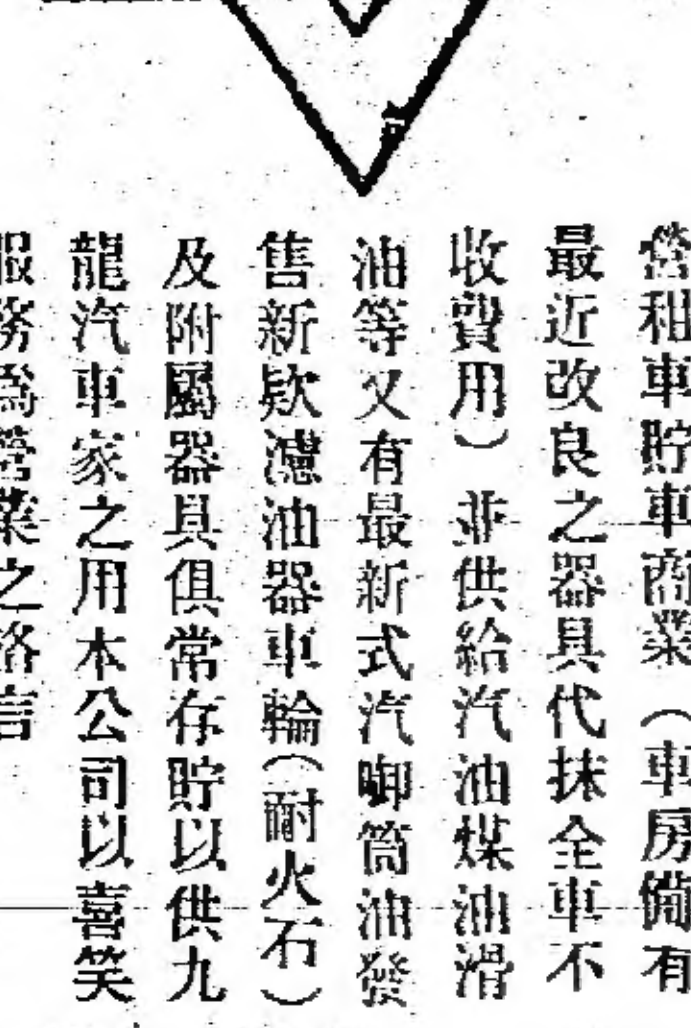 營租車貯車商業（車房備有
最近改良之器具代抹全車不
收費用）並供給汽油煤油滑
油等又有最新式汽啣筒油發
售新欵濾油器車輪（耐火石）
及附屬器具俱常存貯以供九
龍汽車家之用本公司以喜笑
服務爲營業之格言